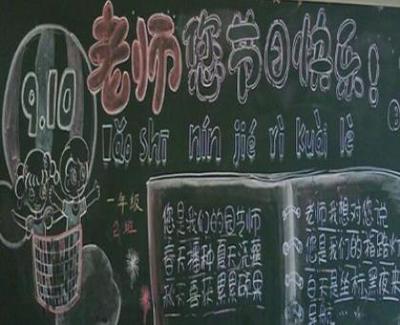 9.10
老师您节日快乐！
lǎo shī nín jié rì kuài lè
一年级
2班
您是我们的园艺师
春天播种夏天浇灌
秋天喜获累累硕果
老师我想对您说
您是我们的指路灯
白天是坐标黑夜来